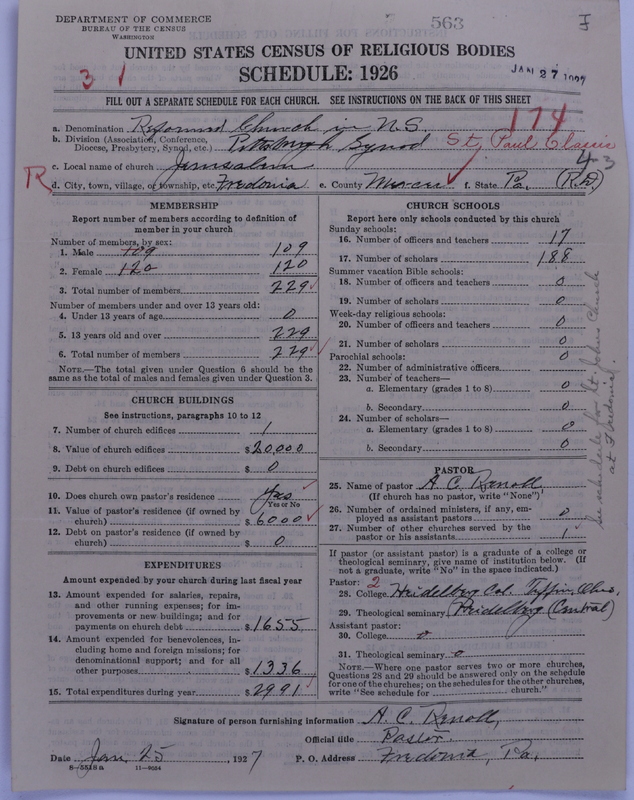 DEPARTMENT OF COMMERCE
BUREAU OF THE CENSUS
WASHINGTON
563
I
UNITED STATES CENSUS OF RELIGIOUS BODIES
SCHEDULE: 1926
JAN 27 1927
3 1
FILL OUT A SEPARATE SCHEDULE FOR EACH CHURCH. SEE INSTRUCTIONS ON THE BACK OF THIS SHEET
174
a. Denomination Reformed Church in U.S.
b. Division (Association, Conference, Diocese, Presbytery, Synod, etc.) Pittsburgh Synod St. Paul Classis
4-3
c. Local name of church Jerusalem
R d. City, town, village, or township, etc. Fredonia e. County Mercer f. State Pa. (R.D.)
MEMBERSHIP
Report number of members according to definition of member in your church
Number of members, by sex:
1. Male 109 109
2. Female 120 120
3. Total number of members 229
Number of members under and over 13 years old:
4. Under 13 years of age 0
5. 13 years old and over 229
6. Total number of members 229
NOTE.—The total given under Question 6 should be same as the total of males and females given under Question 3.
CHURCH BUILDINGS
See instructions, paragraphs 10 to 12
7. Number of church edifices 1
8. Value of church edifices $20,000
9. Debt on church edifices $ 0
10. Does church own pastor's residence Yes
Yes or No
11. Value of pastor's residence (if owned by church) $6000
12. Debt on pastor's residence (if owned by church) $ 0
EXPENDITURES
Amount expended by your church during last fiscal year
13. Amount expended for salaries, repairs, and other running expenses; for improvements or new buildings; and for payments on church debt $1655
14. Amount expended for benevolences, including home and foreign missions; for denominational support; and for all other purposes $1336
15. Total expenditures during year $2991
CHURCH SCHOOLS
Report here only schools conducted by this church
Sunday schools:
16. Number of officers and teachers 17
17. Number of scholars 188
Summer vacation Bible schools:
18. Number of officers and teachers 0
19. Number of scholars 0
Week-day religious schools:
20. Number of officers and teachers 0
21. Number of scholars 0
Parochial schools: 0
22. Number of administrative officers
23. Number of teachers—
a. Elementary (grades 1 to 8) 0
b. Secondary 0
24. Number of scholars—
a. Elementary (grades 1 to 8) 0
b. Secondary 0
PASTOR
25. Name of pastor A. C. Renoll
(If church has no pastor, write "None")
26. Number of ordained ministers, if any, employed as assistant pastors 0
27. Number of other churches served by the pastor or his assistants 1
If pastor (or assistant pastor) is a graduate of a college or theological seminary, give name of institution below. (If not a graduate, write "No" in the space indicated.)
Pastor: 2
28. College Heidelberg Col. Tiffin, Ohio.
29. Theological seminary Heidelberg (Central)
Assistant pastor:
30. College 0
31. Theological seminary 0
NOTE.—Where one pastor serves two or more churches, Questions 28 and 29 should be answered only on the schedule for one of the churches; on the schedules for the other churches, write "See schedule for ........ church."
See schedule for St. Johns Church at Fredonia.
Signature of person furnishing information A. C. Renoll,
Official title Pastor.
Date Jan. 25, 1927 P. O. Address Fredonia, Pa.
8—5518a 11—9054